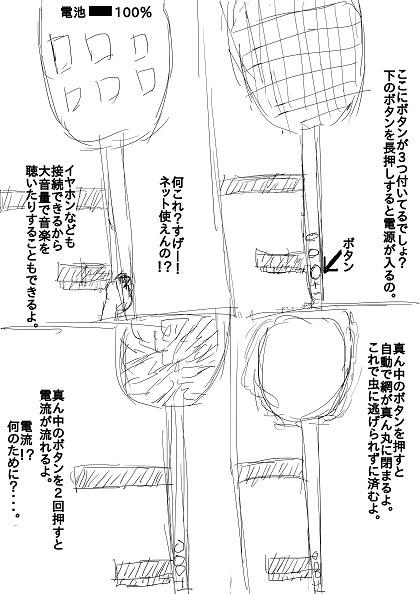 ここにボタンが3つ付いてるでしょ?
下のボタンを長押しすると電源が入るの。
ボタン
電池 100%
何これ?すげー!
ネット使えんの!?
イヤホンなども
接続できるから
大音量で音楽を
聴いたりすることもできるよ。
真ん中のボタンを押すと
自動で網が真ん丸に閉まるよ。
これで虫に逃げられずに済むよ。
真ん中のボタンを2回押すと
電流が流れるよ。
電流!?
何のために?・・・。